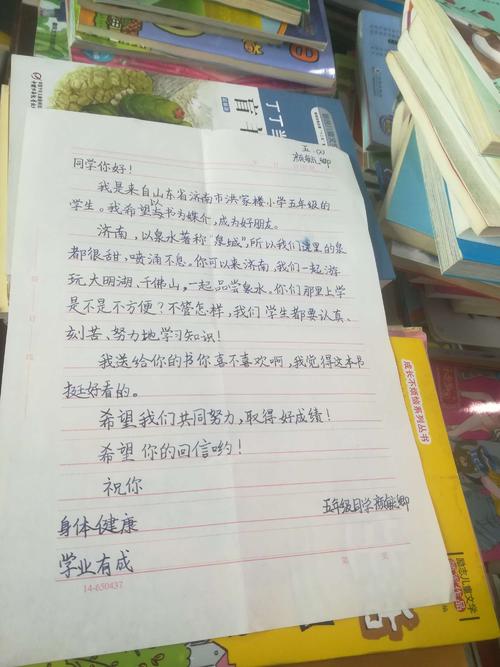 丁丁当
盲
五.(8)
颜毓卿
同学你好!
我是来自山东省济南市洪家楼小学五年级的
学生。我希望以书为媒介,成为好朋友。
济南,以泉水著称“泉城”,所以我们这里的泉
都很甜,喷涌不息。你可以来济南,我们一起游
玩大明湖、千佛山,一起品尝泉水。你们那里上学
是不是不方便?不管怎样,我们学生都要认真、
刻苦、努力地学习知识!
我送给你的书你喜不喜欢啊,我觉得这本书
挺好看的。
希望我们共同努力,取得好成绩!
希望你的回信哟!
祝你
五年级同学颜毓卿
身体健康
学业有成
14-650437
第 页
成长不烦恼系列丛书
励志儿童文学